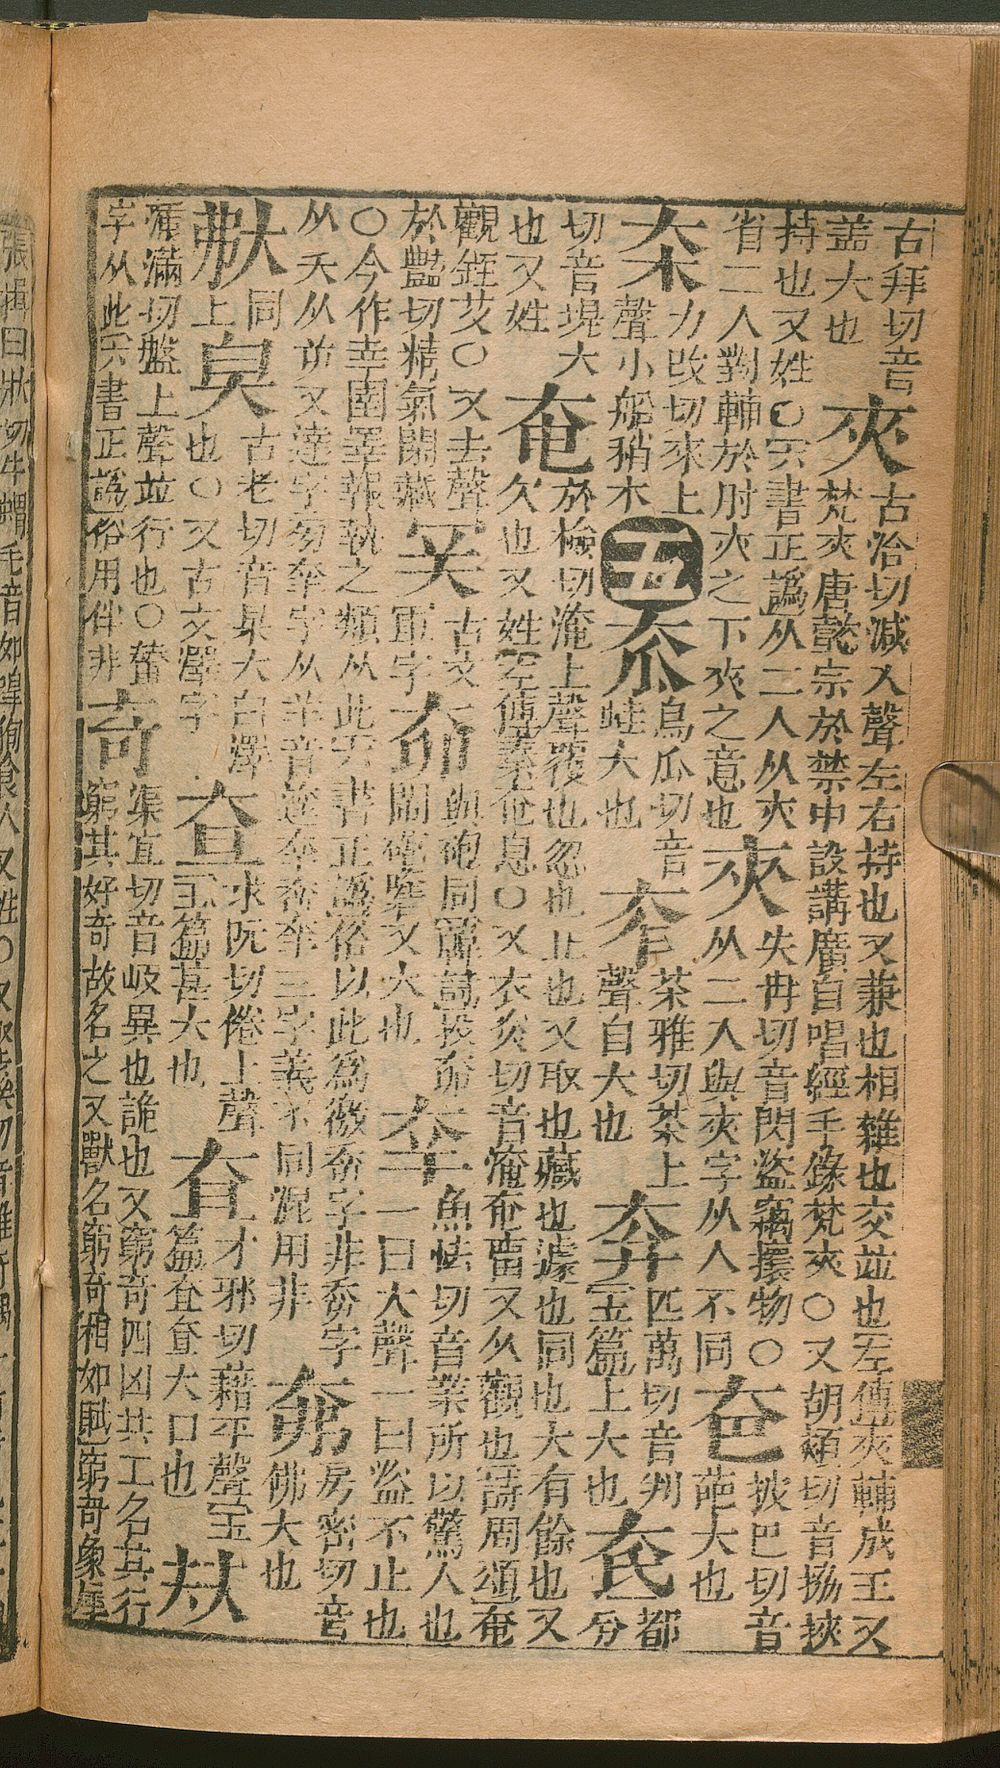 古拜切音
蓋大也
夾
古洽切減入聲左右持也又兼也相雜也交竝也左傳夾輔成王又
梵夾唐懿宗於禁中設講廣自唱經手錄梵夾○又胡頰切音協挾
持也又姓○六書正譌从二人从夾
省二人對輔於肘夾之下夾之意也
㚒
失冉切音閃盜竊褱物○
从二入與夾字从人不同
㚖
披巴切音
葩大也
㚓
力改切來上
聲小船稍木
五
㚎
烏瓜切音
蛙大也
㚗
茶雅切茶上
聲自大也
匹萬切音判
玉篇上大也
奃
都
分
切音堤大
也又姓
奄
於檢切淹上聲覆也忽也止也又取也藏也遽也同也大有餘也又
久也又姓左傳秦奄息○又衣炎切音淹奄畱又从觀也詩周頌奄
觀銍艾○又去聲
於豔切精氣閉藏
古文
軍字
奅
與砲同韓詩投奅
閙礰擊又大也
㚔
魚怯切音業所以驚人也
一曰大聲一曰盜不止也
○今作幸圉睪報執之類从此六書正譌俗以此為字非奓字
从夭从屰又達字㚔字从羊音達三字義不同混用非
㚕
房密切音
佛大也
㚘
同
上
㚖
古老切音杲大白澤
也○又古文澤字
查
求阮切倦上聲
玉篇甚大也
㚗
才邪切藉平聲玉
篇大口也
㚘
蒲滿切盤上聲竝行也○輦
字从此六書正譌俗用伴非
奇
渠宜切音岐異也詭也又窮奇四凶共工名其行
窮其好奇故名之又獸名窮奇相如賦窮奇象犀